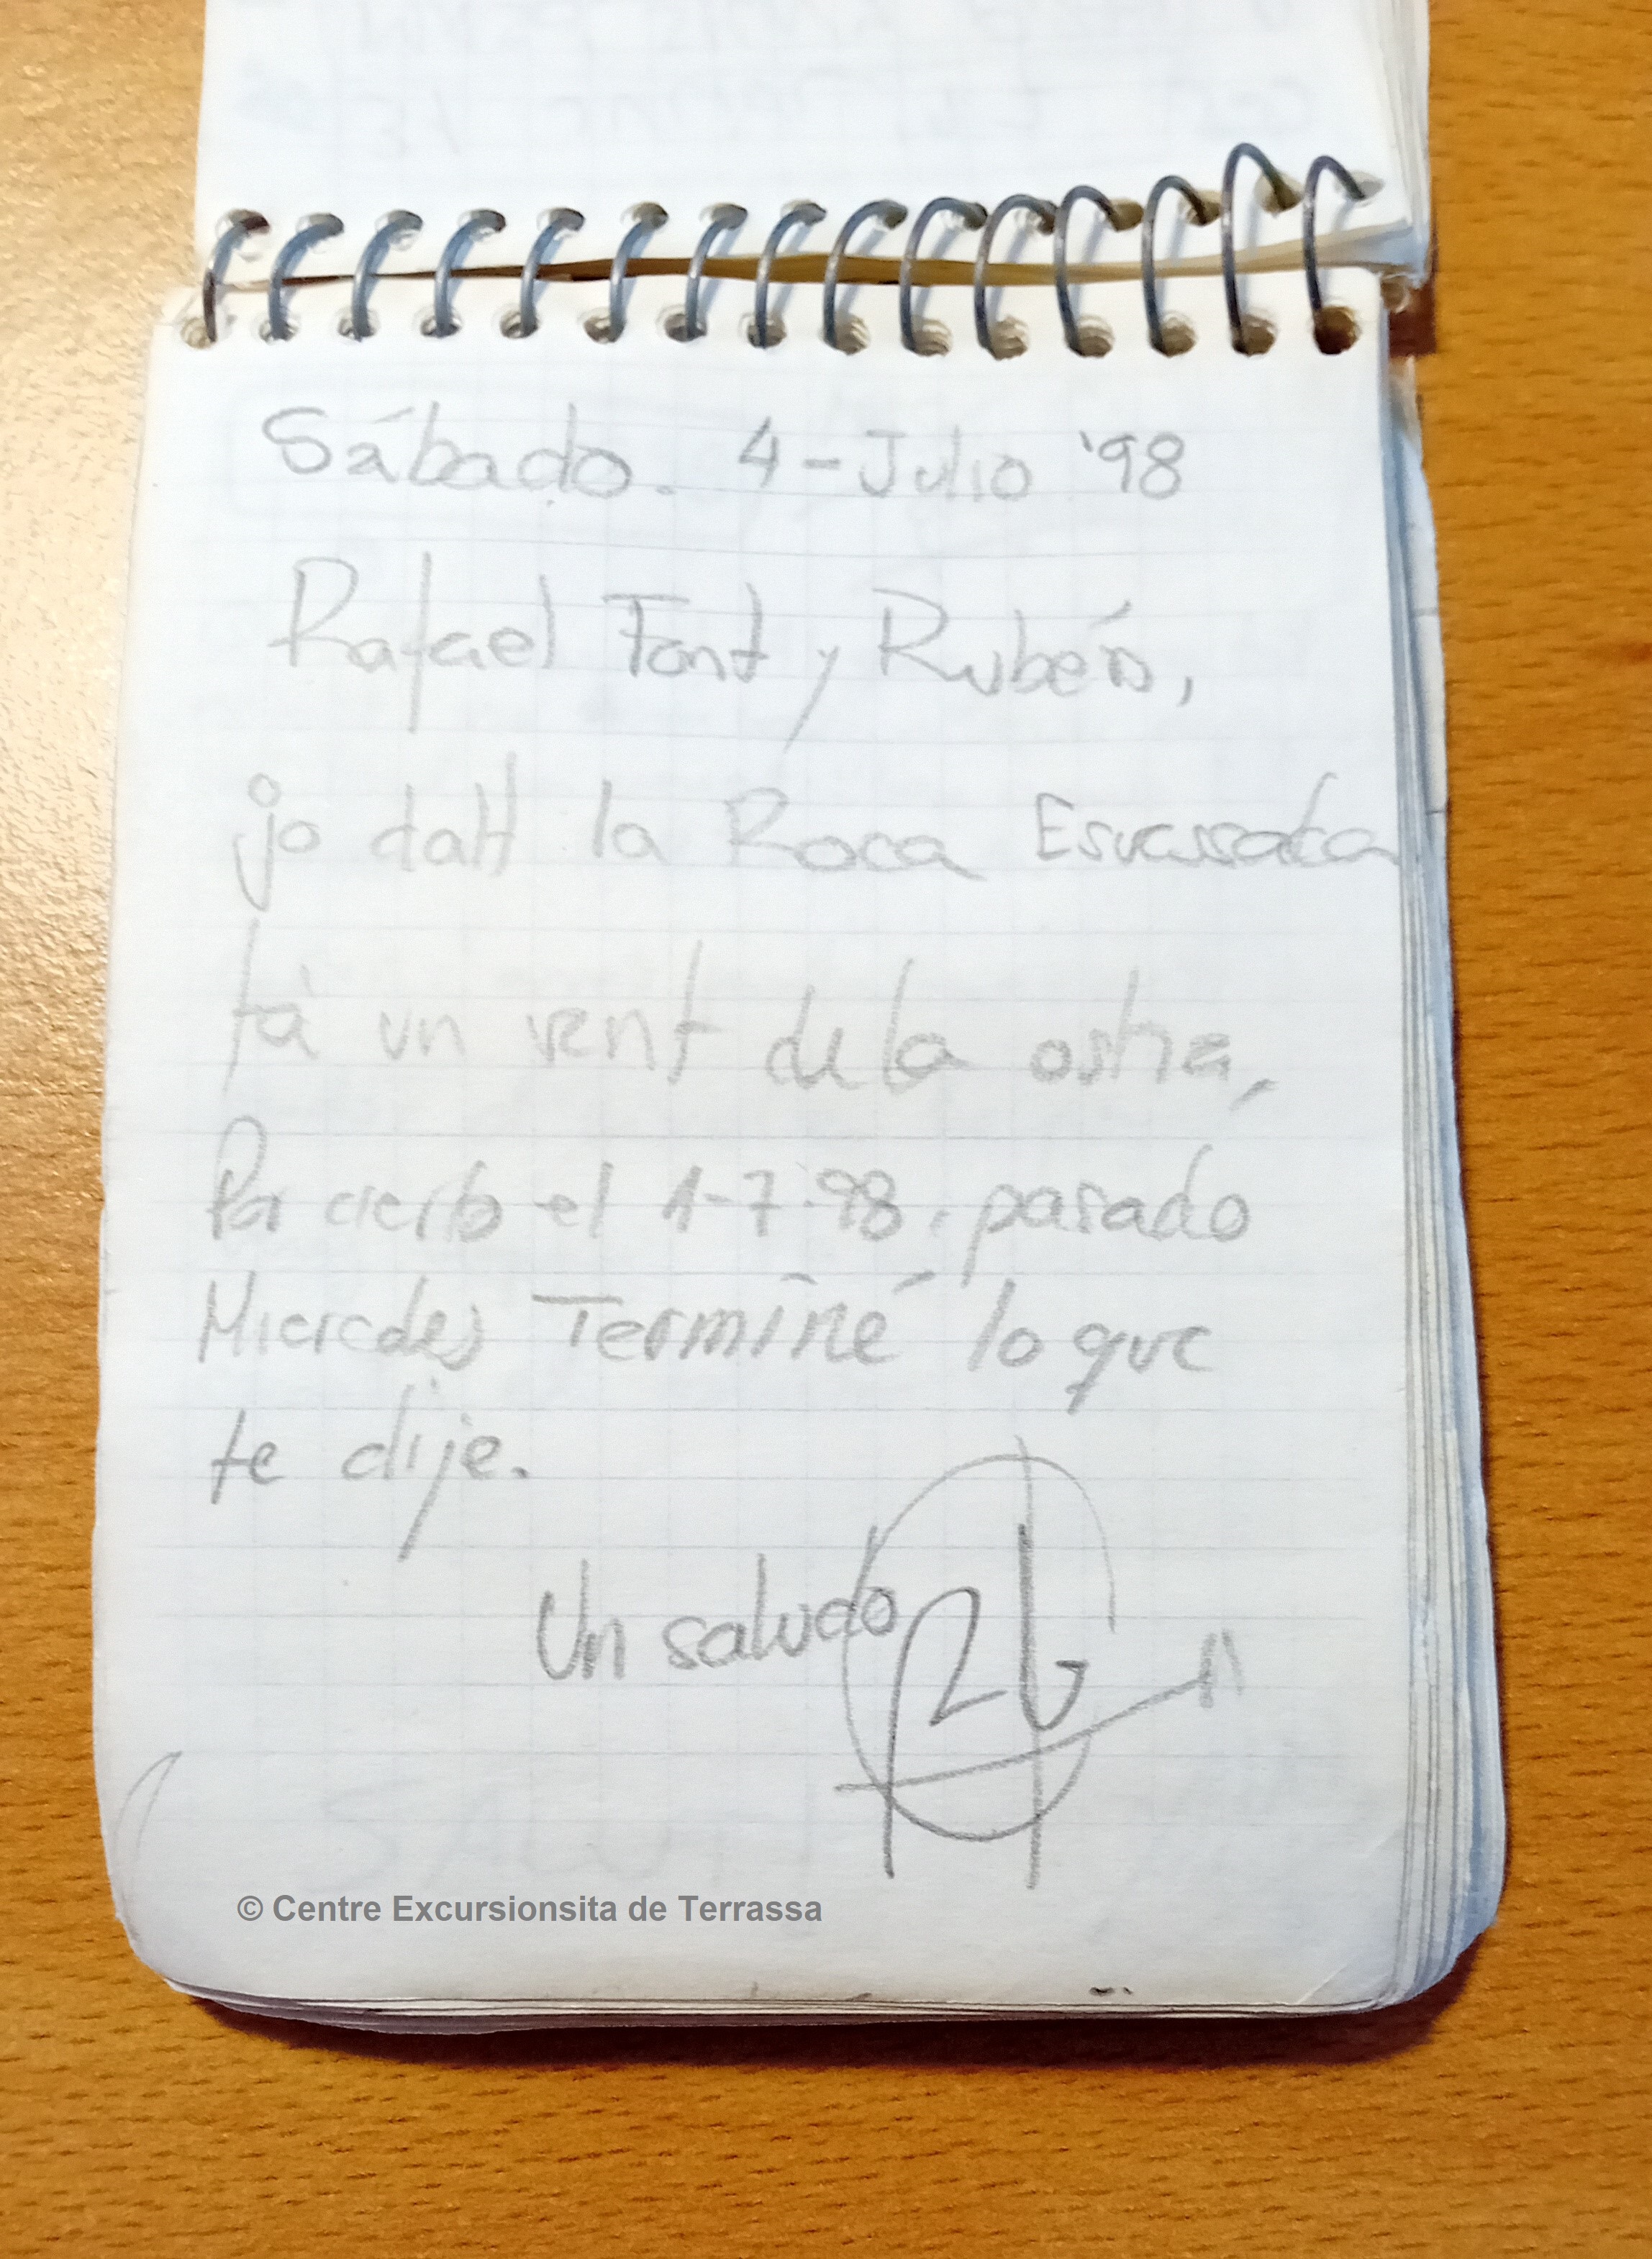 Sábado. 4 - Julio '98
Rafael Font y Rubén,
jo dalt la Roca
fà un vent de la ostia,
Por cierto el 1-7-98, pasado
Miercoles Terminé lo que
te dije.
Un saludo
© Centre Excursionsita de Terrassa